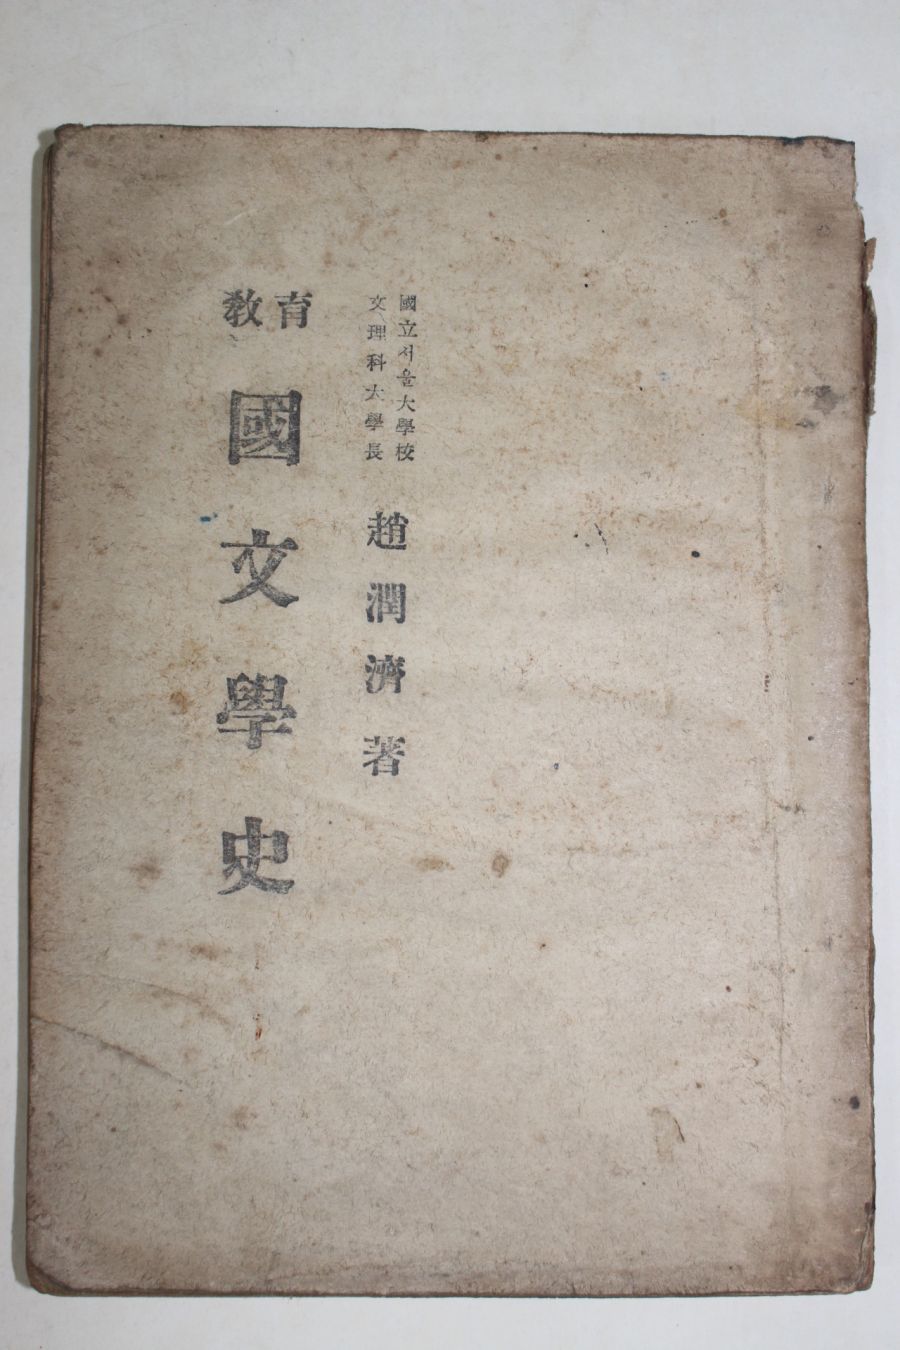 國立서울大學校
文理科大學長
趙潤濟著
敎育
國文學史